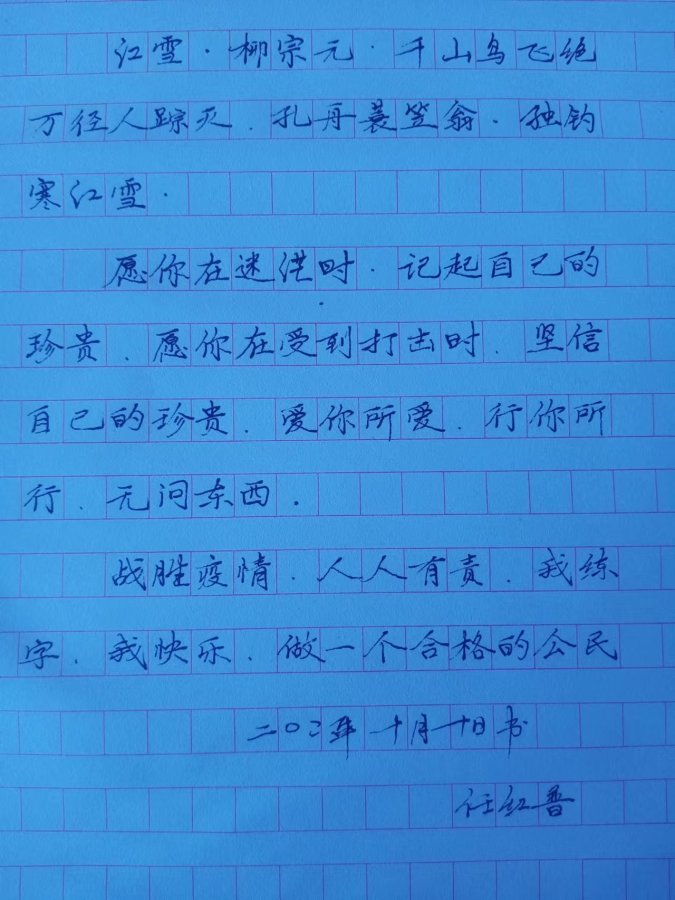 江雪·柳宗元·千山鸟飞绝
万径人踪灭.孔舟蓑笠翁.独钓
寒江雪.
愿你在迷茫时.记起自己的
珍贵.愿你在受到打击时.坚信
自己的珍贵.爱你所爱.行你所
行.无问东西.
战胜疫情.人人有责.我练
字.我快乐.做一个合格的公民
二〇二年十月十日书
任红普